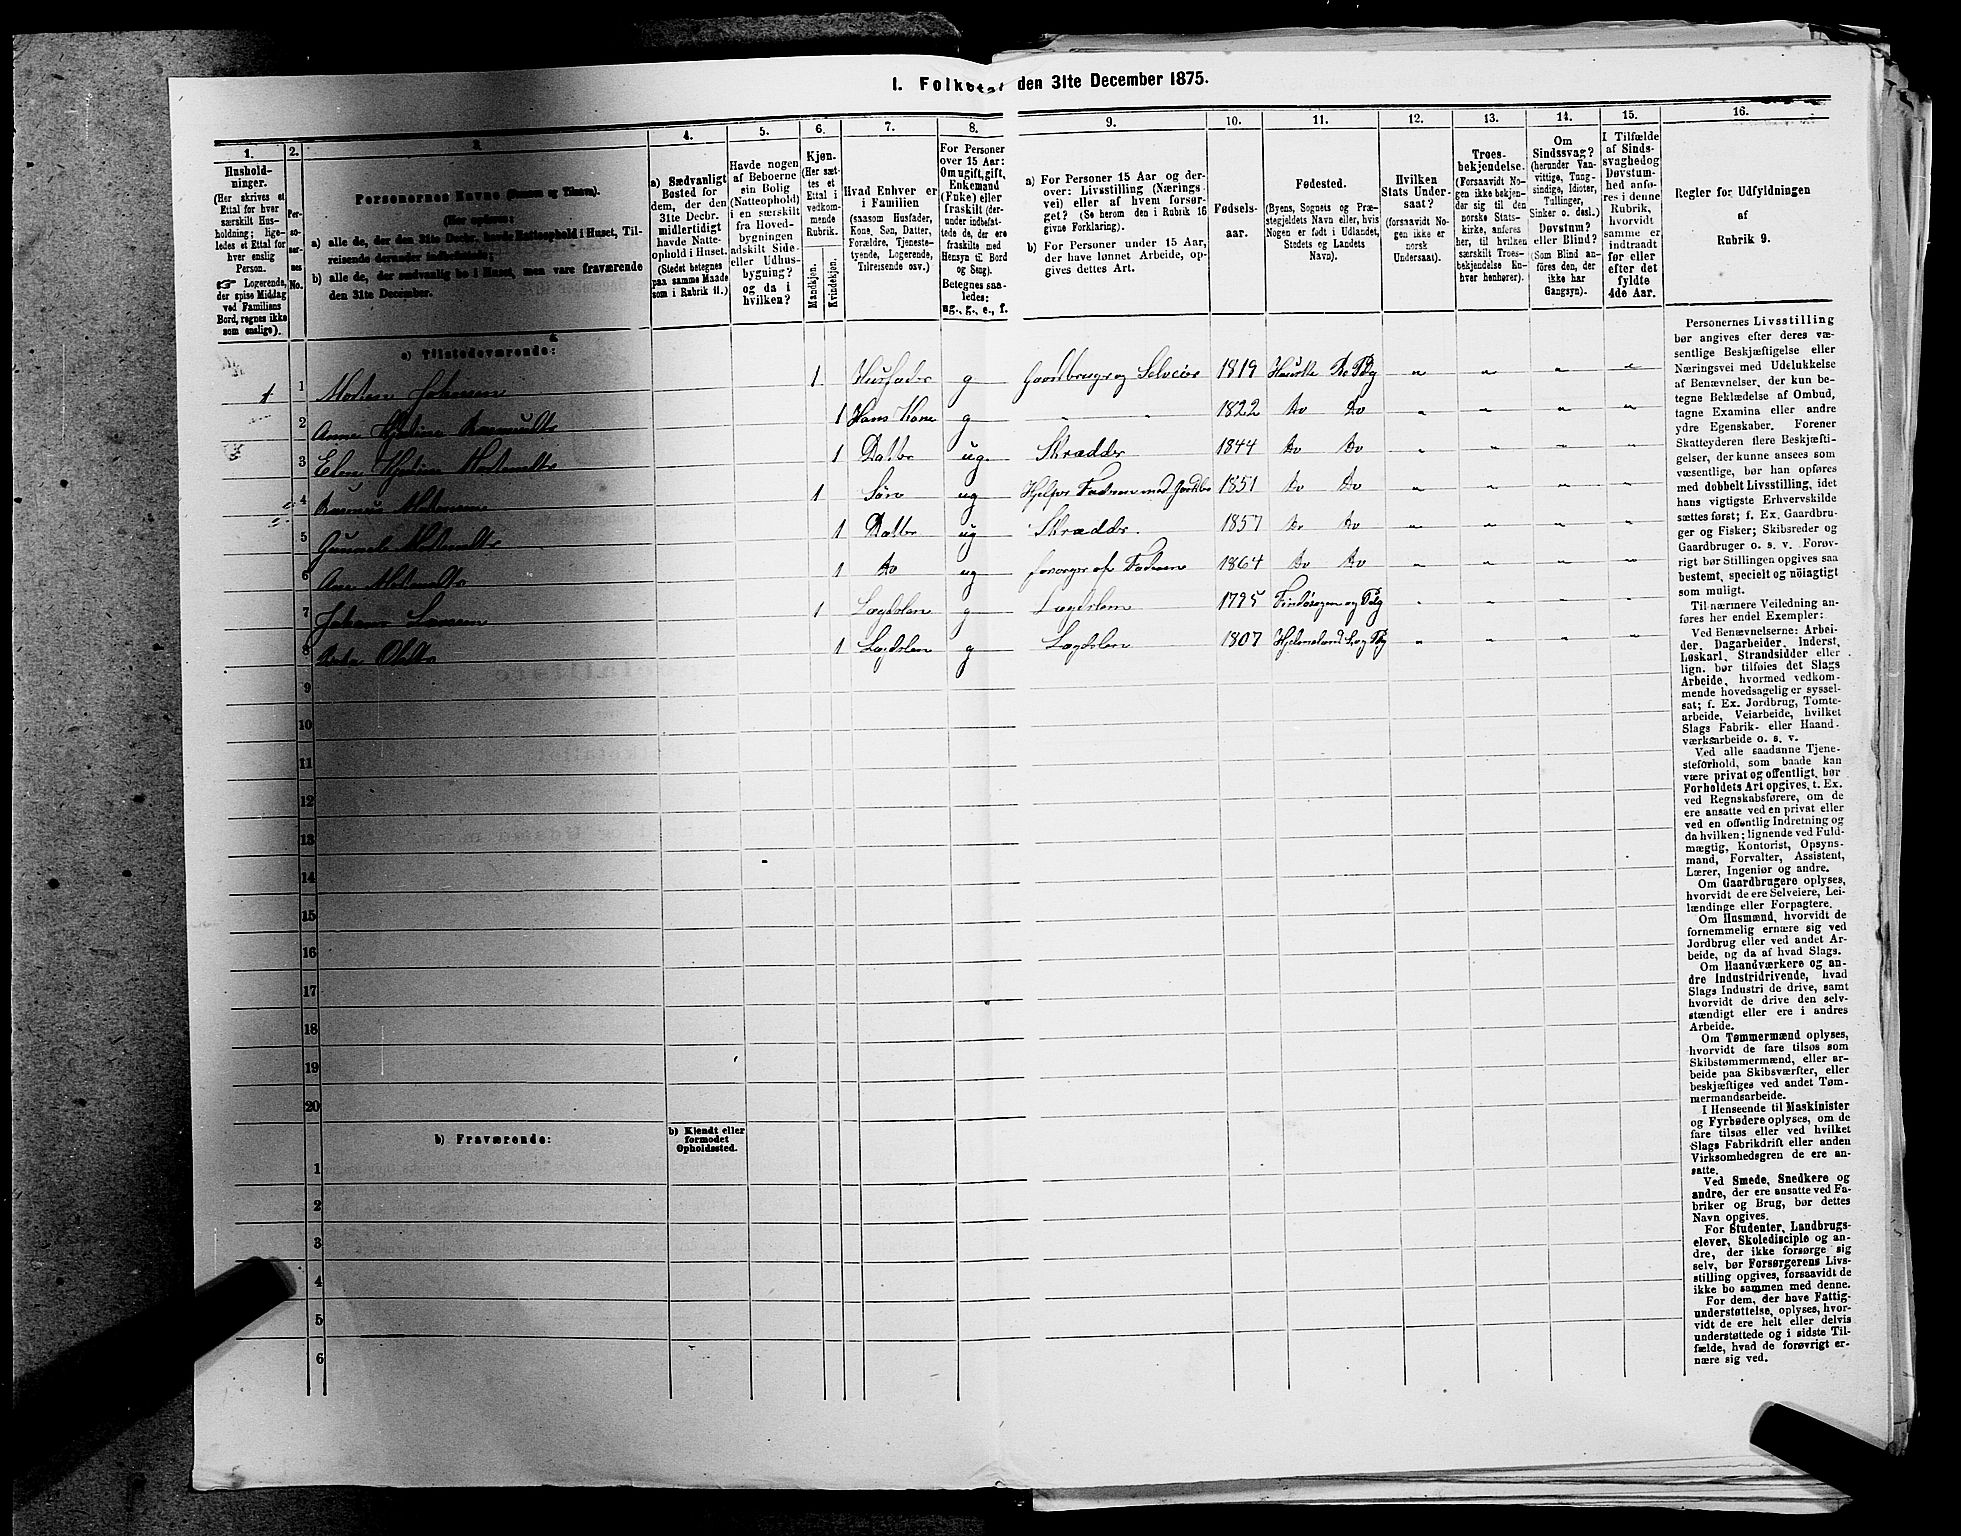 I. Folketal den 31te December 1875.
1. 2. 3. 4. 5. 6. 7. 8. 9. 10. 11. 12. 13. 14. 15. 16.
Hushold-
ninger.
(Her skrives et
Ettal for hver
særskilt Hus-
holdning; lige-
ledes et Ettal for
hver enslig
Person.
☞ Logerende,
der spise Middag
ved Familiens
Bord, regnes ikke
som enslige).
Per-
so-
ner-
nes
No.
Personernes Navne (Fornavn og Tilnavn).
(Her opføres:
a) alle de, der den 31te Decbr. havde Natteophold i Huset, Til-
reisende derunder indbefattede;
b) alle de, der sædvanlig bo i Huset, men vare fraværende
den 31te December.
a) Sædvanligt
Bosted for
dem, der den
31te Decbr.
midlertidigt
havde Natte-
ophold i Huset.
(Stedet betegnes
paa samme Maade
som i Rubrik 11.)
Havde nogen
af Beboerne
sin Bolig
(Natteophold)
i en særskilt
fra Hoved-
bygningen
adskilt Side-
eller Udhus-
bygning?
og da i
hvilken?
Kjøn.
(Her sæt-
tes et
Ettal i
vedkom-
mende
Rubrik.
Mandkjøn.
Kvindekjøn.
Hvad Enhver er
i Familien
(saasom Husfader,
Kone, Søn, Datter,
Forældre, Tjeneste-
tyende, Logerende,
Tilreisende osv.)
For Personer
over 15 Aar:
Om ugift, gift,
Enkemand
(Enke) eller
fraskilt (der-
under indbefat-
tede de, der ere
fraskilte med
Hensyn til Bord
og Seng).
Betegnes saa-
ledes:
ug., g., e., f.
a) For Personer 15 Aar og der-
over: Livsstilling (Nærings-
vei) eller af hvem forsør-
get? (Se herom den i Rubrik 16
givne Forklaring).
b) For Personer under 15 Aar,
der have lønnet Arbeide, op-
gives dettes Art.
Fødsels-
aar.
Fødested.
(Byens, Sognets og Præ-
stegjeldets Navn eller, hvis
Nogen er født i Udlandet,
Stedets og Landets
Navn).
Hvilken
Stats Under-
saat?
(forsaavidt No-
gen ikke er
norsk
Undersaat).
Troes-
bekjendelse.
(Forsaavidt No-
gen ikke bekjen-
der sig til den
norske Stats-
kirke, anføres
her, til hvilken
særskilt Troes-
bekjendelse En-
hver henhører).
Om
Sindssvag?
(herunder Van-
vittige, Tung-
sindige, Idioter,
Tullinger,
Sinker o. desl.)
Døvstum?
eller Blind?
(Som Blind an-
føres den, der
ikke har
Gangsyn).
I Tilfælde
af Sinds-
svaghed og
Døvstum-
hed anfø-
res i denne
Rubrik,
hvorvidt
samme er
indtraadt
før eller
efter det
fyldte
4de Aar.
Regler for Udfyldningen
af
Rubrik 9.
a) Tilstedeværende:
1 1 Morten Johnsen 1 Husfader g Gaardbruger og Selveier 1819 Do
2 Anne 1 Hans Kone g 1822 Do Do
3 Elen Mortensdtr 1 Datter ug Skrædder 1844 Do Do
4 Rasmus Mortensen 1 Søn ug Hjelper Faderen med 1851 Do Do
5 1 Datter ug Skrædder. 1857 Do Do
6 Ane 1 Do ug forsørges af Faderen 1864 Do Do
7 Larsen 1 Lægdslem g Lægdslem 1795
8 1 Lægdslem g Lægdslem 1807 Hjelmeland
9
10
11
12
13
14
15
16
17
18
19
20
b) Fraværende:
b) Kjendt eller
formodet
Opholdssted.
1
2
3
4
5
6
Personernes Livsstilling
bør angives efter deres væ-
sentlige Beskjæftigelse eller
Næringsvei med Udelukkelse
af Benævnelser, der kun be-
tegne Beklædelse af Ombud,
tagne Examina eller andre
ydre Egenskaber. Forener
Skatteyderen flere Beskjæfti-
gelser, der kunne ansees som
væsentlige, bør han opføres
med dobbelt Livsstilling, idet
hans vigtigste Erhvervskilde
sættes først; f. Ex. Gaardbru-
ger og Fisker; Skibsreder og
Gaardbruger o. s. v. Forøv-
rigt bør Stillingen opgives saa
bestemt, specielt og nöiagtigt
som muligt.
Til nærmere Veiledning an-
føres her endel Exempler:
Ved Benævnelserne: Arbei-
der, Dagarbeider, Inderst,
Løskarl, Strandsidder eller
lign. bør tilføies det Slags
Arbeide, hvormed vedkom-
mende hovedsagelig er syssel-
sat; f. Ex. Jordbrug, Tomte-
arbeide, Veiarbeide, hvilket
Slags Fabrik- eller Haand-
værksarbeide o. s. v.
Ved alle saadanne Tjene-
steforhold, som baade kan
være privat og offentligt, bør
Forholdets Art opgives, t. Ex.
ved Regnskabsførere, om de
ere ansatte ved en privat eller
ved en offentlig Indretning og
da hvilken; lignende ved Fuld-
mægtig, Kontorist, Opsyns-
mand, Forvalter, Assistent,
Lærer, Ingeniør og andre.
Om Gaardbrugere oplyses,
hvorvidt de ere Selveiere, Lei-
lændinge eller Forpagtere.
Om Husmænd, hvorvidt de
fornemmelig ernære sig ved
Jordbrug eller ved andet Ar-
beide, og da af hvad Slags.
Om Haandværkere og an-
dre Industridrivende, hvad
Slags Industri de drive, samt
hvorvidt de drive den selv-
stændigt eller ere i andres
Arbeide.
Om Tømmermænd oplyses,
hvorvidt de fare tilsøs som
Skibstømmermænd, eller ar-
beide paa Skibsværfter, eller
beskjæftiges ved andet Tøm-
mermandsarbeide.
I Henseende til Maskinister
og Fyrbødere oplyses, om de
fare tilsøs eller ved hvilket
Slags Fabrikdrift eller anden
Virksomhedsgren de ere an-
satte.
Ved Smede, Snedkere og
andre, der ere ansatte ved Fa-
briker og Brug, bør dettes
Navn opgives.
For Studenter, Landbrugs-
elever, Skoledisciple og an-
dre, der ikke forsørge sig
selv, bør Forsørgerens Livs-
stilling opgives, forsaavidt de
ikke bo sammen med denne.
For dem, der have Fattig-
understøttelse, oplyses, hvor-
vidt de ere helt eller delvis
understøttede og i sidste Til-
fælde, hvad de forøvrigt er-
nære sig ved.